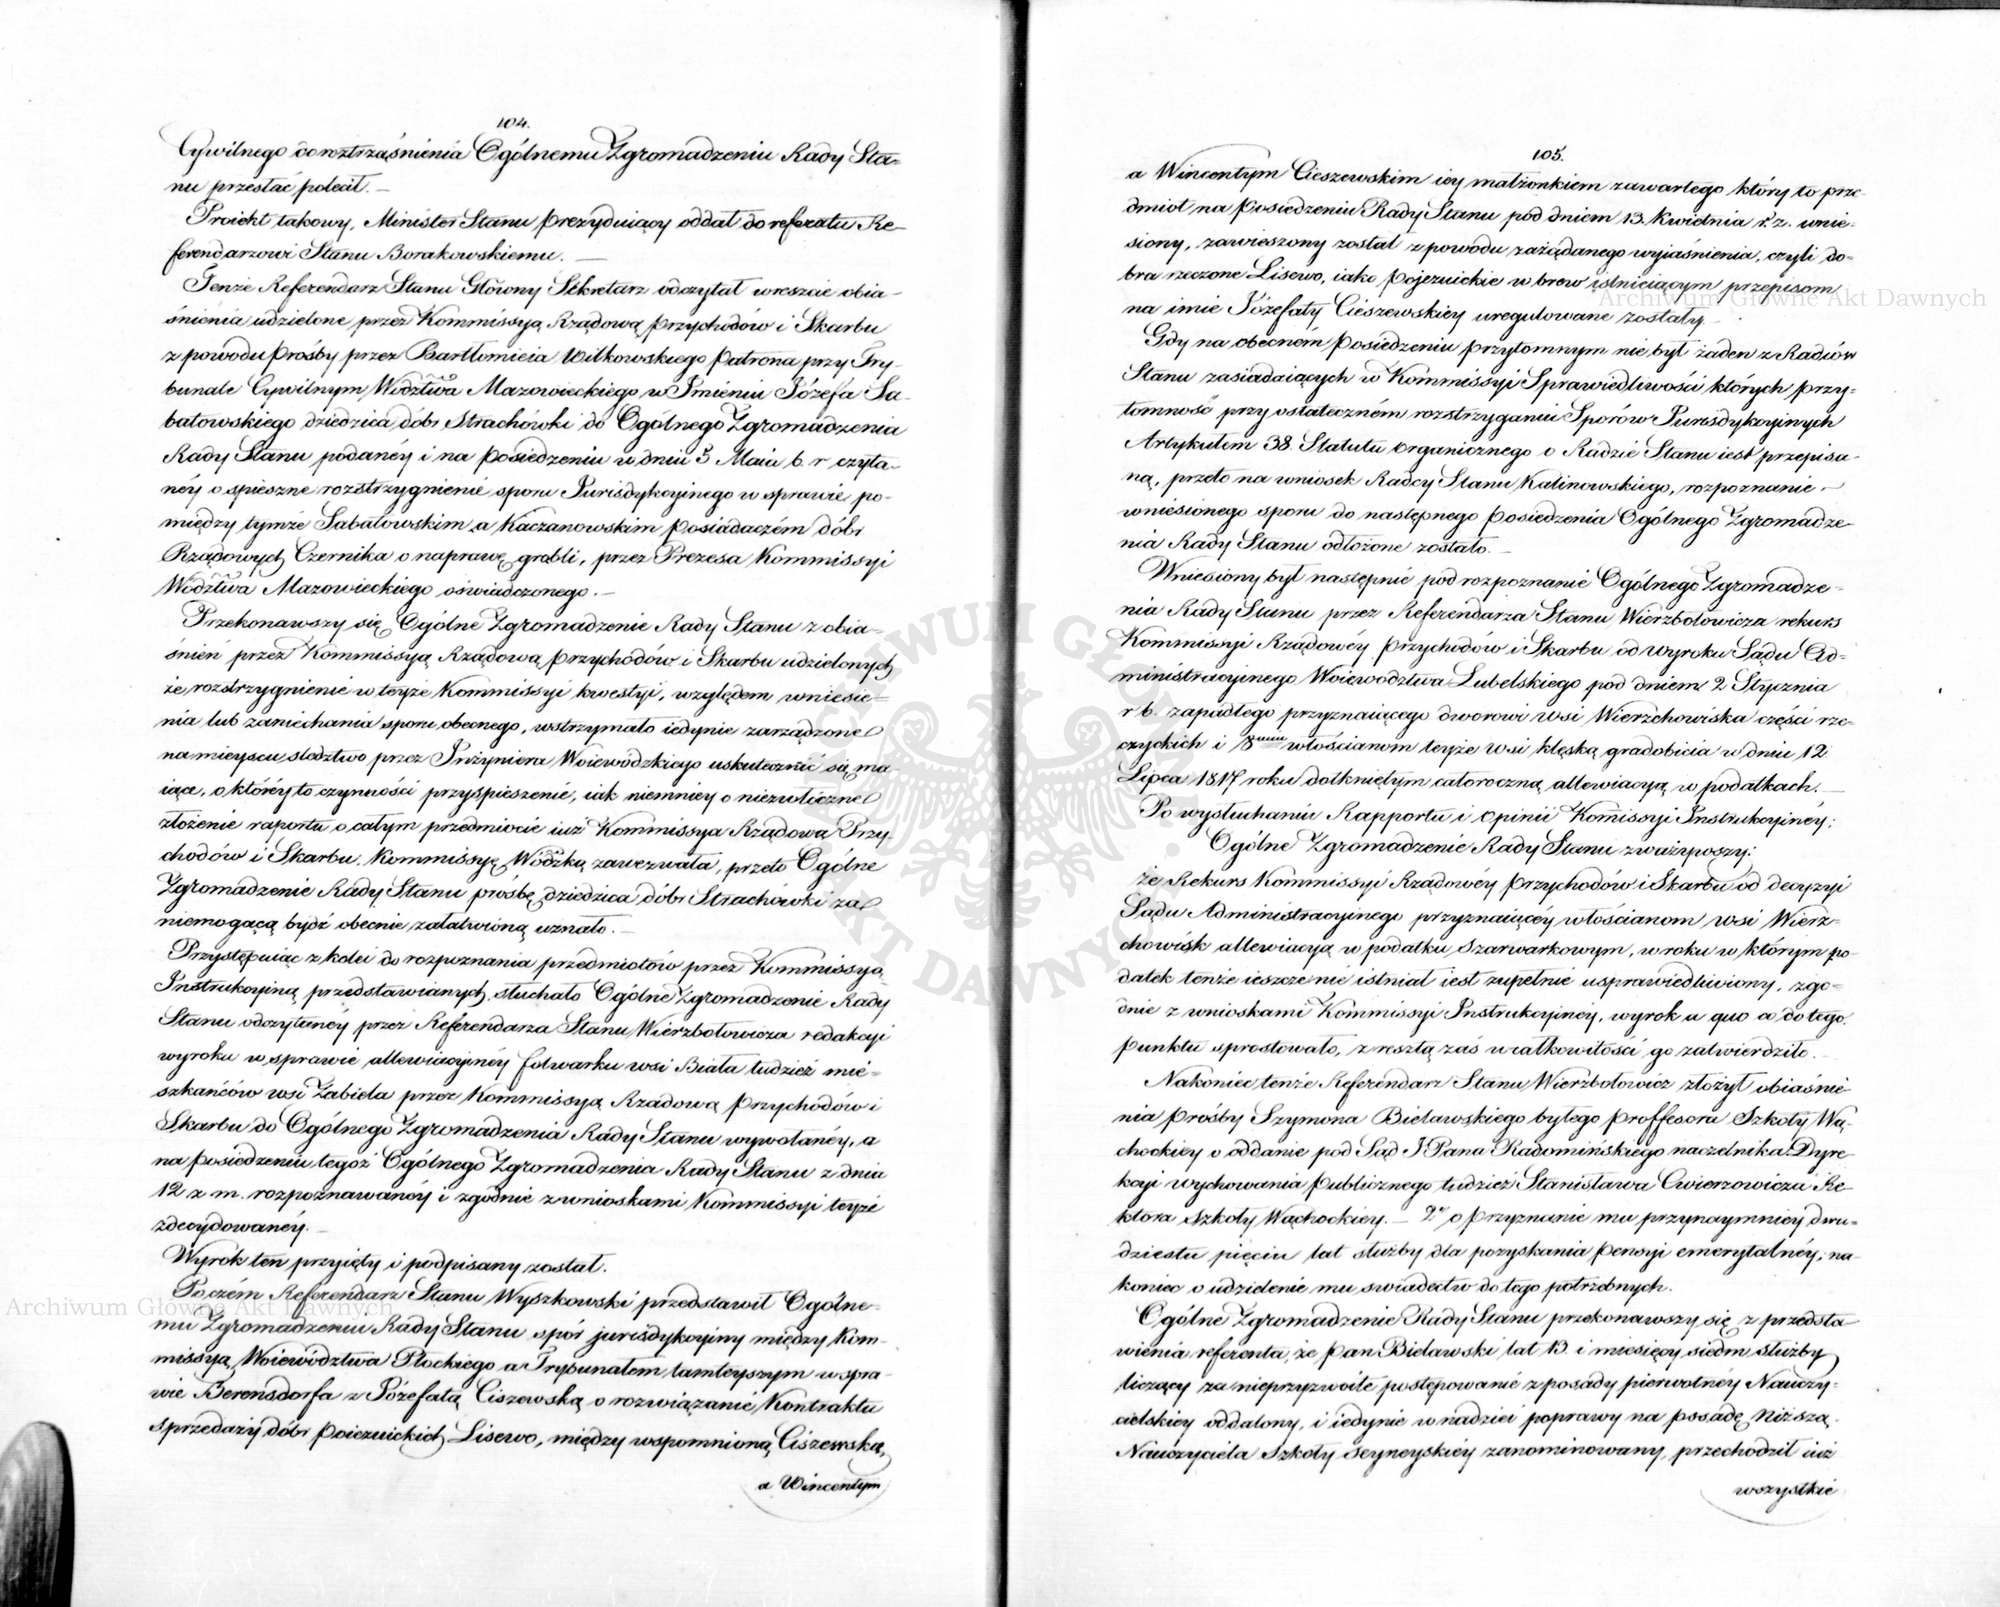 104.
Cywilnego do roztrząśnienia Ogólnemu Zgromadzeniu Rady Sta-
nu przesłać polecił. —
Proiekt takowy, Minister Stanu Prezyduiący oddał do referatu Re-
ferendarzowi Stanu Borakowskiemu. —
Tenże Referendarz Stanu Główny Sekretarz odczytał wreszcie obia-
śnienia udzielone przez Kommissyą Rządową Przychodów i Skarbu
z powodu Prośby przez Bartłomieia Witkowskiego Patrona przy Try-
bunale Cywilnym Wdztwa Mazowieckiego w Jmieniu Józefa Sa-
batowskiego dziedzica dóbr Strachówki do Ogólnego Zgromadzenia
Rady Stanu podanéy i na Posiedzeniu w dniu 5 Maia b. r czyta-
néy o spieszne rozstrzygnienie sporu Jurisdykcyinego w sprawie po-
między tymże Sabatowskim a Kaczanowskim Posiadaczém dóbr
Rządowych Czernika o naprawę grobli, przez Prezesa Kommissyi
Wdztwa Mazowieckiego oświadczonego. —
Przekonawszy się Ogólne Zgromadzenie Rady Stanu z obia-
śnień przez Kommissyą Rządową Przychodów i Skarbu udzielonych
że rozstrzygnienie w teyże Kommissyi kwestyi, względem wniesie-
nia lub zaniechania sporu obecnego, wstrzymało iedynie zarządzone
na mieyscu śledztwo przez Jnżyniera Woiewódzkiego uskutecznić się ma-
iące, o któréy to czynności przyspieszenie, iak niemniey o niezwłoczne
złożenie raportu o całym przedmiocie iuż Kommissya Rządowa Przy-
chodów i Skarbu, Kommissyę Wdzką zawezwała, przeto Ogólne
Zgromadzenie Rady Stanu prośbę dziedzica dóbr Strachówki za
niemogącą bydź obecnie załatwioną uznało. —
Przystępuiąc z kolei do rozpoznania przedmiotów przez Kommissyą
Jnstrukcyiną przedstawianych, słuchało Ogólne Zgromadzenie Rady
Stanu odczytanéy przez Referendarza Stanu Wierzbołowicza redakcyi
wyroku w sprawie allewiacyinéy folwarku wsi Biała tudzież mie-
szkańców wsi Zabiela przez Kommissyą Rządową Przychodów i
Skarbu do Ogólnego Zgromadzenia Rady Stanu wywołanéy, a
na Posiedzeniu tegoż Ogólnego Zgromadzenia Rady Stanu z dnia
12 z m. rozpoznawanéy i zgodnie z wnioskami Kommissyi teyże
zdecydowanéy. —
Wyrok ten przyięty i podpisany został.
Poczém Referendarz Stanu Wyszkowski przedstawił Ogólne-
mu Zgromadzeniu Rady Stanu spór jurisdykcyiny między Kom-
missyą Woiewództwa Płockiego a Trybunałem tamteyszym w spra-
wie Berensdorfa z Józefatą Ciszewską o rozwiązanie Kontraktu
sprzedaży dóbr Poiezuickich Lisewo, między wspomnioną Ciszewską,
a Wincentym
105.
a Wincentym Cieszewskim iey małżonkiem zawartego który to prze-
dmiot na Posiedzeniu Rady Stanu pod dniem 13. Kwietnia r. z. wnie-
siony, zawieszony został z powodu zażądanego wyiaśnienia, czyli do-
bra rzeczone Lisewo, iako Pojezuickie w brew istnieiącym przepisom
na imie Józefaty Cieszewskiey uregulowane zostały. —
Gdy na obecném Posiedzeniu przytomnym nie był żaden z Radców
Stanu zasiadaiących w Kommissyi Sprawiedliwości których przy-
tomność przy ostateczném rozstrzyganiu Sporów Jurisdykcyinych
Artykułem 38. Statutu organicznego o Radzie Stanu iest przepisa-
ną, przeto na wniosek Radcy Stanu Kalinowskiego, rozpoznanie
wniesionego sporu do następnego Posiedzenia Ogólnego Zgromadze-
nia Rady Stanu odłożone zostało. —
Wniesiony był następnie pod rozpoznanie Ogólnego Zgromadze-
nia Rady Stanu przez Referendarza Stanu Wierzbołowicza rekurs
Kommissyi Rządowéy Przychodów i Skarbu od wyroku Sądu Ad-
ministracyinego Woiewództwa Lubelskiego pod dniem 2 Stycznia
r b. zapadłego przyznaiącego dworowi wsi Wierzchowiska części rze-
czyckich i 8 włościanom teyże wsi klęską gradobicia w dniu 12
Lipca 1817 roku dotkniętym całoroczną allewiacyą w podatkach. —
Po wysłuchaniu Rapportu i Opinii Kommissyi Jnstrukcyinéy;
Ogólne Zgromadzenie Rady Stanu zważywszy:
że Rekurs Kommissyi Rządowéy Przychodów i Skarbu od decyzyi
Sądu Administracyinego przyznaiącéy włościanom wsi Wierz-
chowisk allewiacyą w podatku szarwarkowym, w roku w którym po-
datek tenże ieszcze nie istniał iest zupełnie usprawiedliwiony, zgo-
dnie z wnioskami Kommissyi Jnstrukcyinéy, wyrok a quo co do tego
punktu sprostowało, z resztą zaś w całkowitości go zatwierdziło. —
Nakoniec tenże Referendarz Stanu Wierzbołowicz złożył obiaśnie-
nia Prośby Szymona Bielawskiego byłego Proffesora Szkoły Wą-
chockiey o oddanie pod Sąd JPana Radomińskiego naczelnika Dyre-
kcyi wychowania Publicznego tudzież Stanisława Cwierzowicza Re-
ktora Szkoły Wąchockiey. — 2o o Przyznanie mu przynaymniey dwu-
dziestu pięciu lat służby dla pozyskania Pensyi emerytalnéy; na-
koniec o udzielenie mu swiadectw do tego potrzebnych.
Ogólne Zgromadzenie Rady Stanu przekonawszy się z przedsta-
wienia referenta, że Pan Bielawski lat 13. i miesięcy siedm służby
liczący za nieprzyzwoite postępowanie z posady pierwotnéy Nauczy-
cielskiey oddalony, i iedynie w nadziei poprawy na posadę niższą
Nauczyciela Szkoły Seyneyskiéy zanominowany, przechodził iuż
wszystkie
Archiwum Główne Akt Dawnych
Archiwum Główne Akt Dawnych
ARCHIWUM GŁÓWNE AKT DAWNYCH